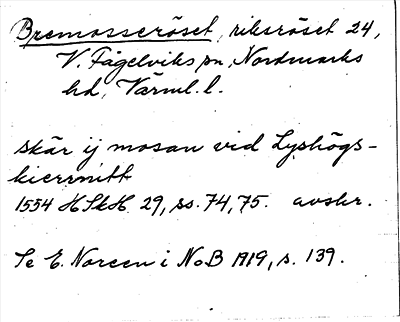 Bremosseröset, riksröset 24,
V. Fågelviks sn, Nordmarks
hd, Värml. l.
skär ij mosan vid Lyshögs-
kierrmitt
1554 HSkH 29, ss. 74, 75. avskr.
Se E. Noreen i NoB 1919, s. 139.